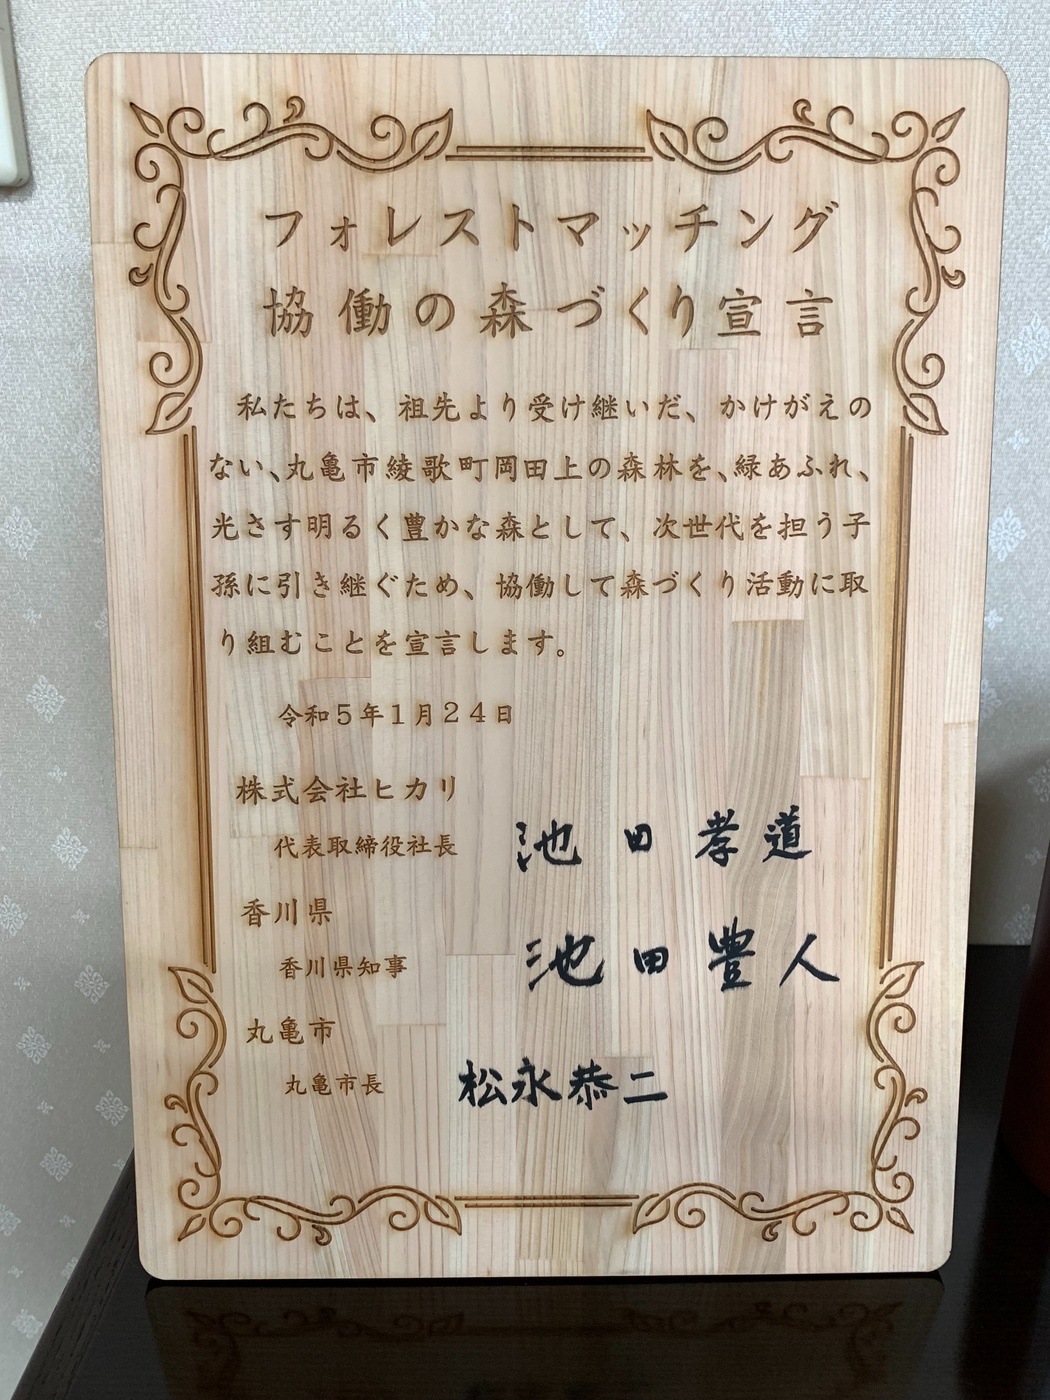 フォレストマッチング
協働の森づくり宣言
私たちは、祖先より受け継いだ、かけがえの
ない、丸亀市綾歌町岡田上の森林を、緑あふれ、
光さす明るく豊かな森として、次世代を担う子
孫に引き継ぐため、協働して森づくり活動に取
り組むことを宣言します。
令和５年１月２４日
株式会社ヒカリ
代表取締役社長 池田孝道
香川県
香川県知事 池田豊人
丸亀市
丸亀市長 松永恭二